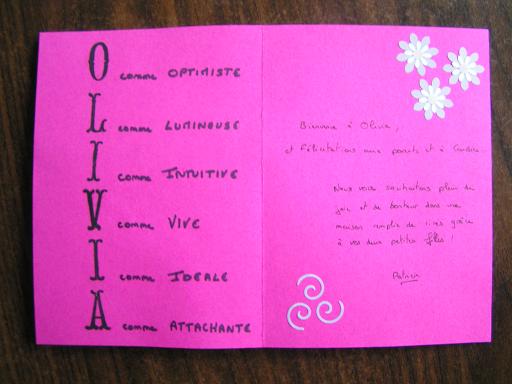 O comme OPTIMISTE
L comme LUMINEUSE
I comme INTUITIVE
V comme VIVE
I comme IDEALE
A comme ATTACHANTE
Bienvenue à Olivia,
et félicitations aux parents et à
Nous vous souhaitons plein de
joie et de bonheur dans une
maison remplie de rires grâce
à vos deux petites filles !